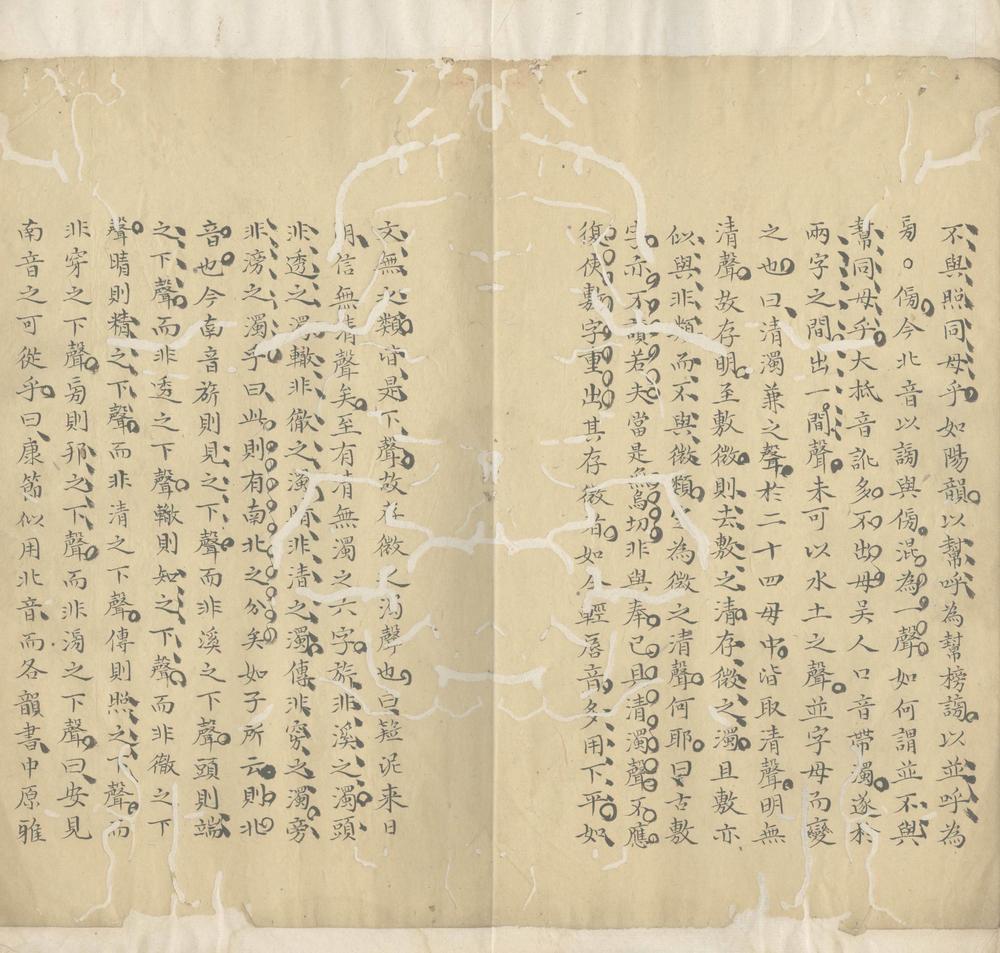 不與照同母乎如陽韻以幫呼為幫榜謗以並呼為
㫄。傍今北音以謗與傍混為一聲如何謂並不與
幫同母乎大柢音訛多不出母吳人口音帶濁遂於
兩字之間出一間聲未可以水土之聲並字母而變
之也曰清濁兼之聲於二十四母中皆取清聲明無
清聲故存明至敷微則去敷之清存微之濁且敷亦
似與非類而不與微類之為微之清聲何耶曰古敷
字亦不順若夫當是無烏切非與奉已具清濁聲不應
復使敷字重出其存微者如今輕唇音多用下平如
文無之類皆是下聲故存微之濁聲也曰疑泥來日
明信無清聲矣至有有無濁之六字旂非溪之濁頭
非透之濁轍非徹之濁晴非清之濁傳非穿之濁旁
非滂之濁乎曰此則有南北之分矣如子所云則北
音也今南音旂則見之下聲而非溪之下聲頭則端
之下聲而非透之下聲轍則知之下聲而非徹之下
聲晴則精之下聲而非清之下聲傳則照之下聲而
非穿之下聲㫄則邦之下聲而非滂之下聲曰安見
南音之可從乎曰康節似用北音而各韻書中原雅